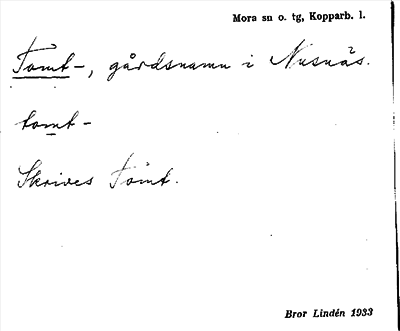 Mora sn o. tg, Kopparb. l.
Tomt-, gårdsnamn i Nusnäs.
tomt-
Skrives Tomt.
Bror Lindén 1933